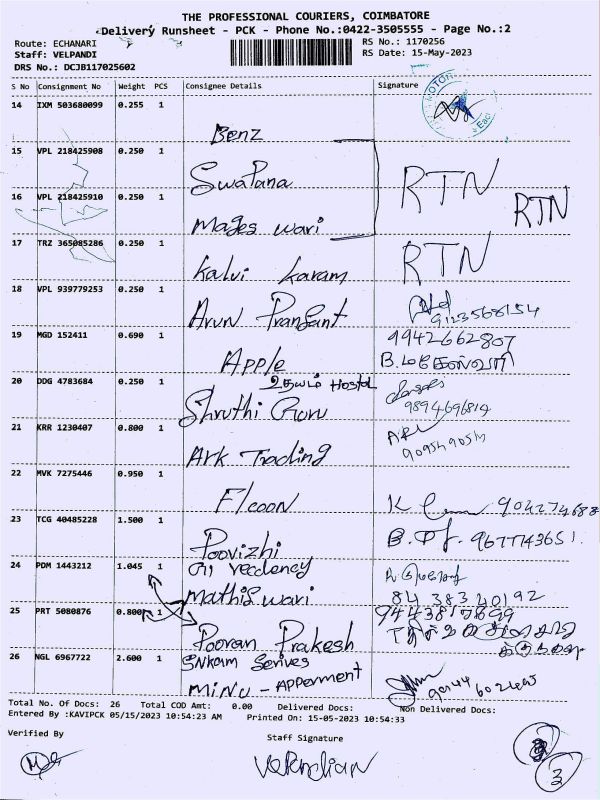 THE PROFESSIONAL COURIERS, COIMBATORE
Delivery Runsheet - PCK - Phone No.:0422-3505555 - Page No.:2
Route: ECHANARI
Staff: VELPANDI
DRS No.: DCJB117025602
RS No.: 1170256
RS Date: 15-May-2023
S No Consignment No Weight PCS Consignee Details Signature
14 IXM 503680099 0.255 1
Benz
15 VPL 218425908 0.250 1
Swapana RTN
16 VPL 218425910 0.250 1
Mages wari RTN
17 TRZ 365085286 0.250 1 RTN
Kalvi Karam
18 VPL 939779253 0.250 1
Arun Pransant 9123568154
19 MGD 152411 0.690 1 9942662807
Apple B.மகேஸ்வரி
20 DDG 4783684 0.250 1 உதயம் Hostel
Shruthi Guru 9894696814
21 KRR 1230407 0.800 1
Ark Trading
22 MVK 7275446 0.950 1
Elcoon K 904274688
23 TCG 40485228 1.500 1
Poovizhi 9677743651.
24 PDM 1443212 1.045 1
Mathis wari 8438340192
25 PRT 5080876 0.800 1
Pooran Prakesh
26 NGL 6967722 2.600 1 Serives
Minu - Apperment
Total No. Of Docs: 26 Total COD Amt: 0.00 Delivered Docs: Non Delivered Docs:
Entered By :KAVIPCK 05/15/2023 10:54:23 AM Printed On: 15-05-2023 10:54:33
Verified By
Staff Signature
3